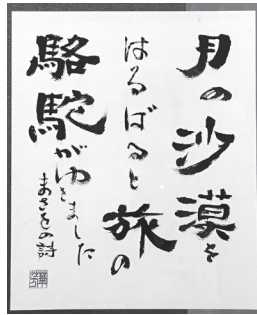 月の沙漠を
はるばると旅の
駱駝がゆきました
まさをの詩